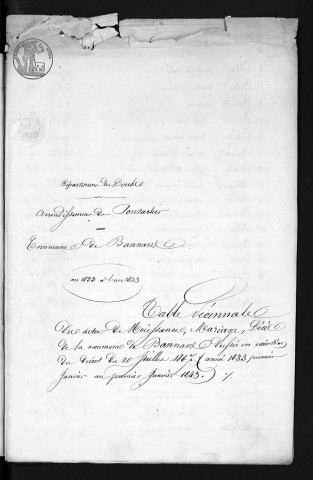 Département du Doubs
Arrondissement de Pontarlier
Commune de Bannans
an 1833 à l'an 1843
Table décennale
des actes de Naissance, Mariage, Décès
de la commune de Bannans dressée en exécution
du décret du 20 Juillet 1807 (année 1833 premier
Janvier au premier Janvier 1843.) %